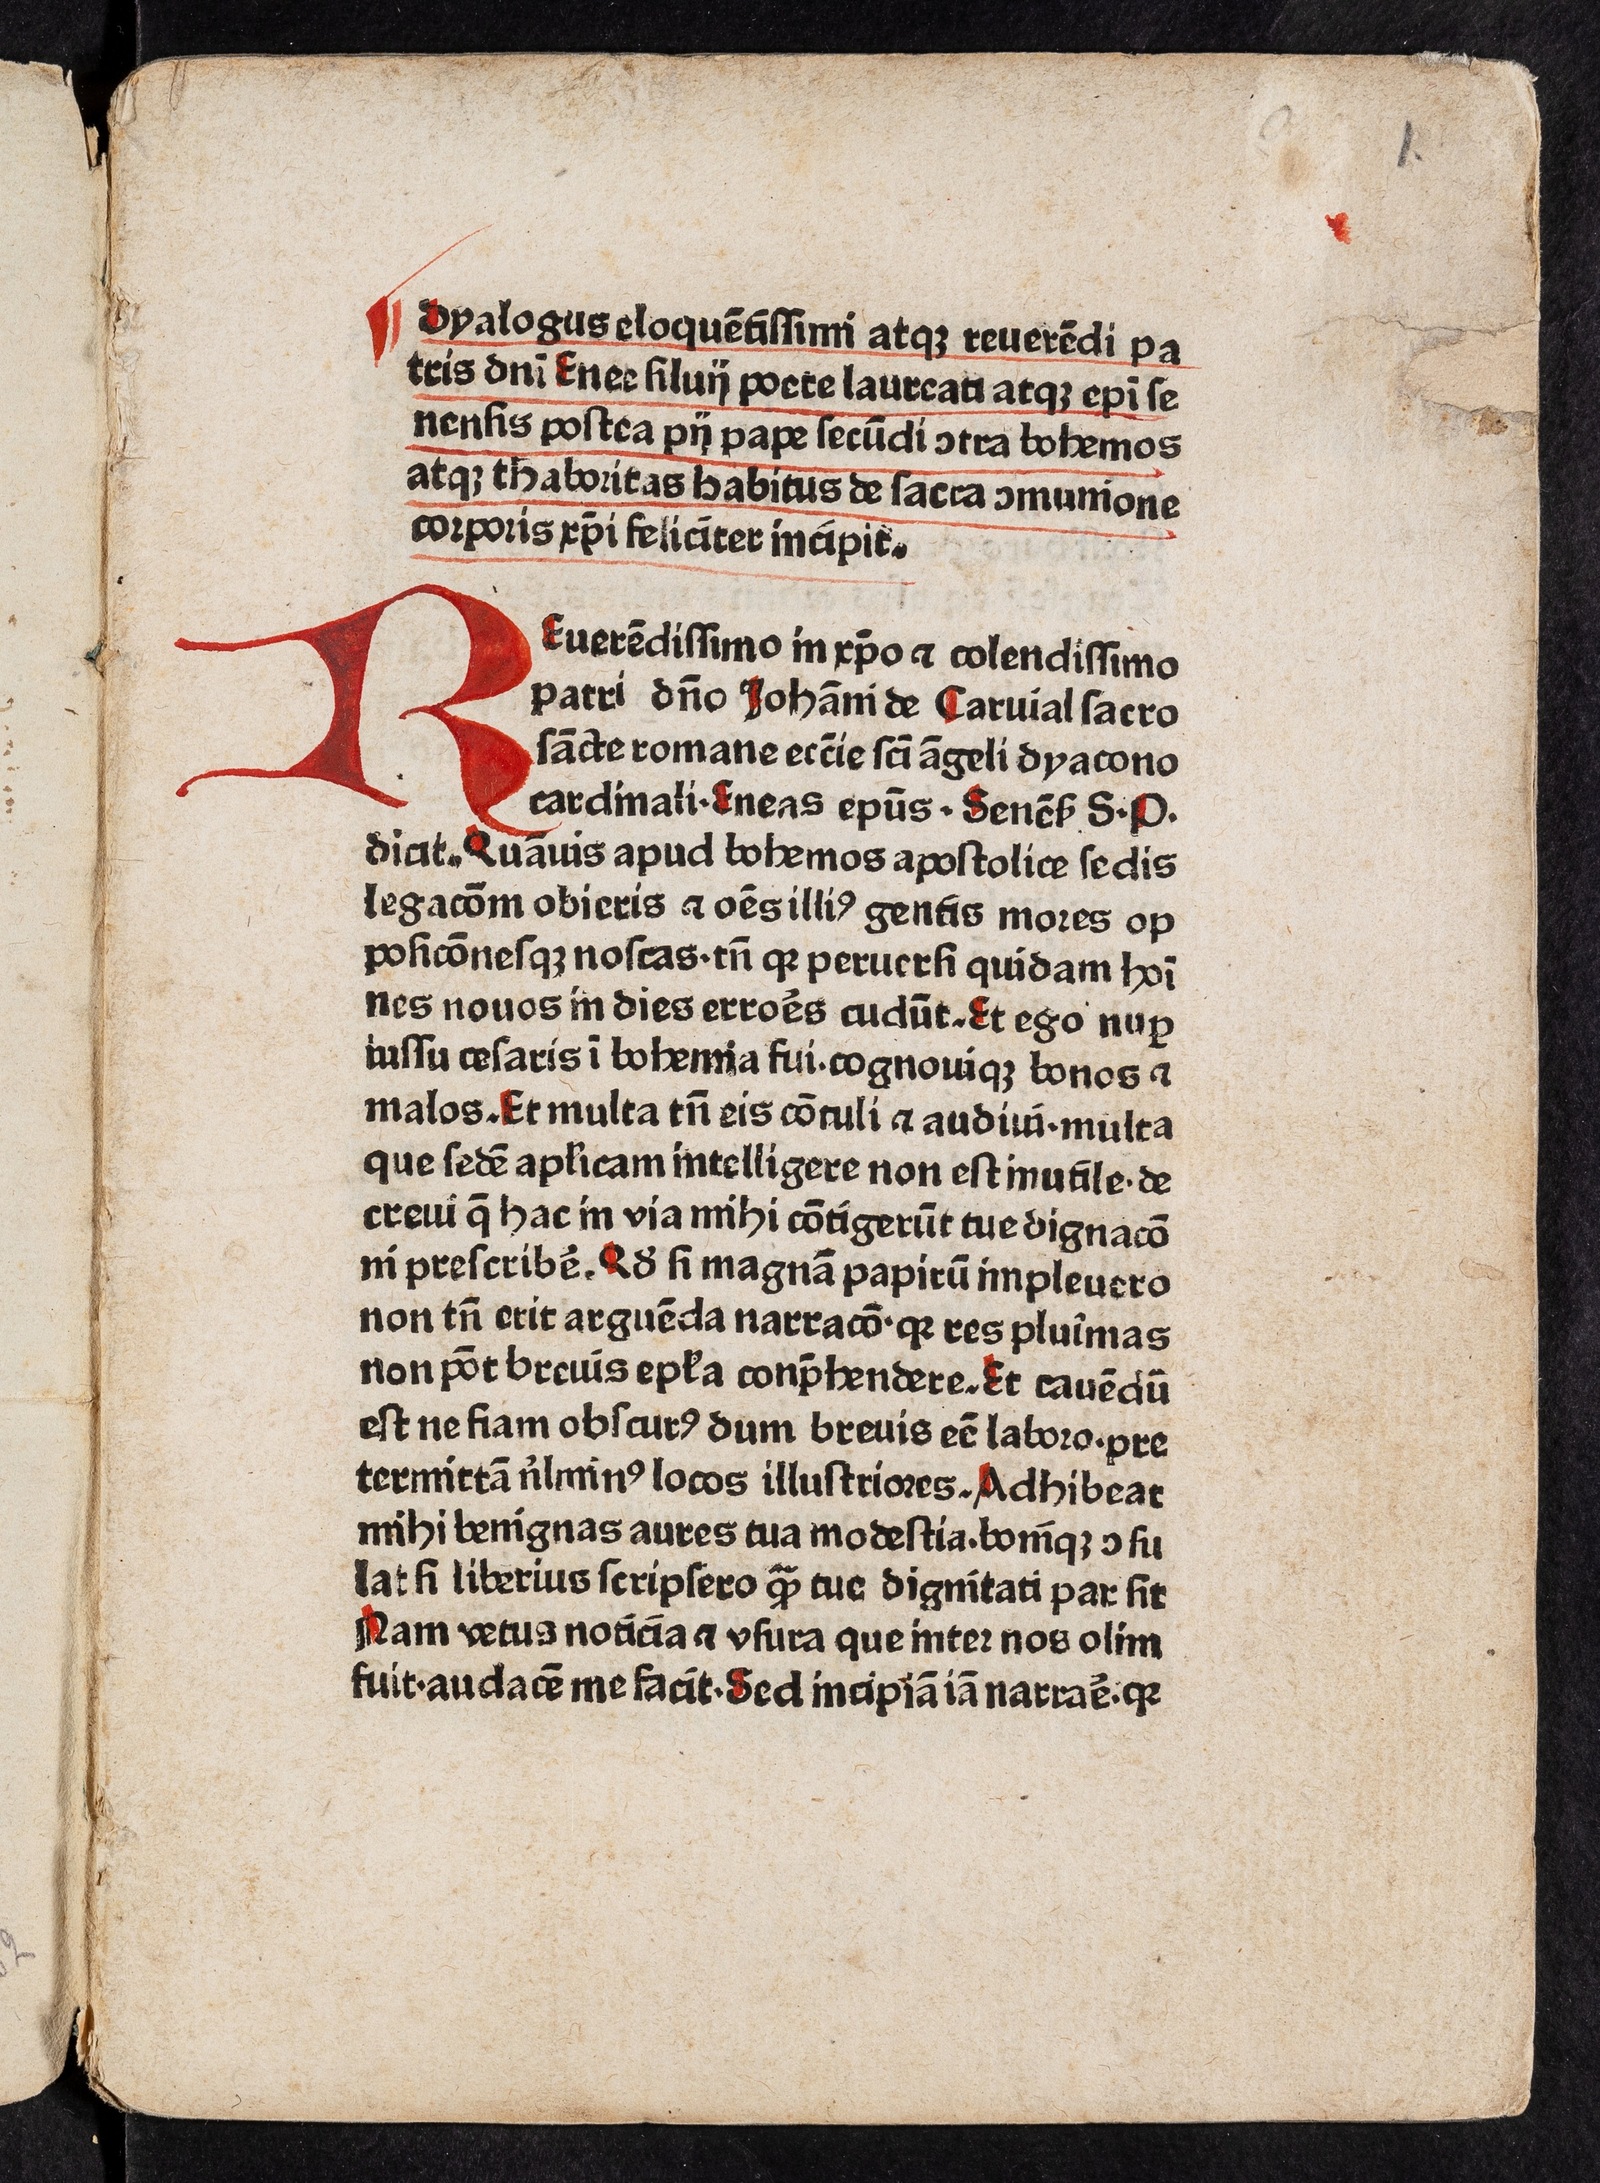 1.
Dyalogus eloquētissimi atqꝫ reuerēdi pa
tris dnī Enee siluij poete laureati atqꝫ epī se
nensis postea pij pape secūdi ↄtra bohemos
atqꝫ thaboritas habitus de sacra ↄmunione
corporis xp̄i feliciter incipit.
REuerēdissimo in xp̄o ⁊ colendissimo
patri dn̄o Johāni de Caruial sacro
sācte romane ecc̄ie sc̄i āgeli dyacono
cardinali·Eneas ep̄us·Senēs̄ S·P·
dicit.Quāuis apud bohemos apostolice sedis
legacōm obieris ⁊ oēs illiꝰ gentis mores op
posicōnesqꝫ noscas·tn̄ qꝛ peruersi quidam hoī
nes nouos in dies erroēs cudūt.Et ego nuꝑ
iussu cesaris ī bohemia fui·cognouiqꝫ bonos ⁊
malos.Et multa tn̄ eis cōtuli ⁊ audiui·multa
que sedē aplicam intelligere non est inutile·de
creui q̄ hac in via mihi cōtigerūt tue dignacō
ni prescribē.Qd si magnā papirū impleuero
non tn̄ erit arguēda narracō·qꝛ res pluīmas
non pōt breuis epła conp̄hendere.Et cauēdū
est ne fiam obscurꝰ dum breuis eē laboro·pre
termittā nl̄minꝰ locos illustriores.Adhibeat
mihi benignas aures tua modestia·bonīqꝫ ↄsu
lat si liberius scripsero qꝫ̄ tue dignitati par sit
Nam vetus noticia ⁊ vsura que inter nos olim
fuit·audacē me facit·Sed incipiā iā narraē·qꝛ